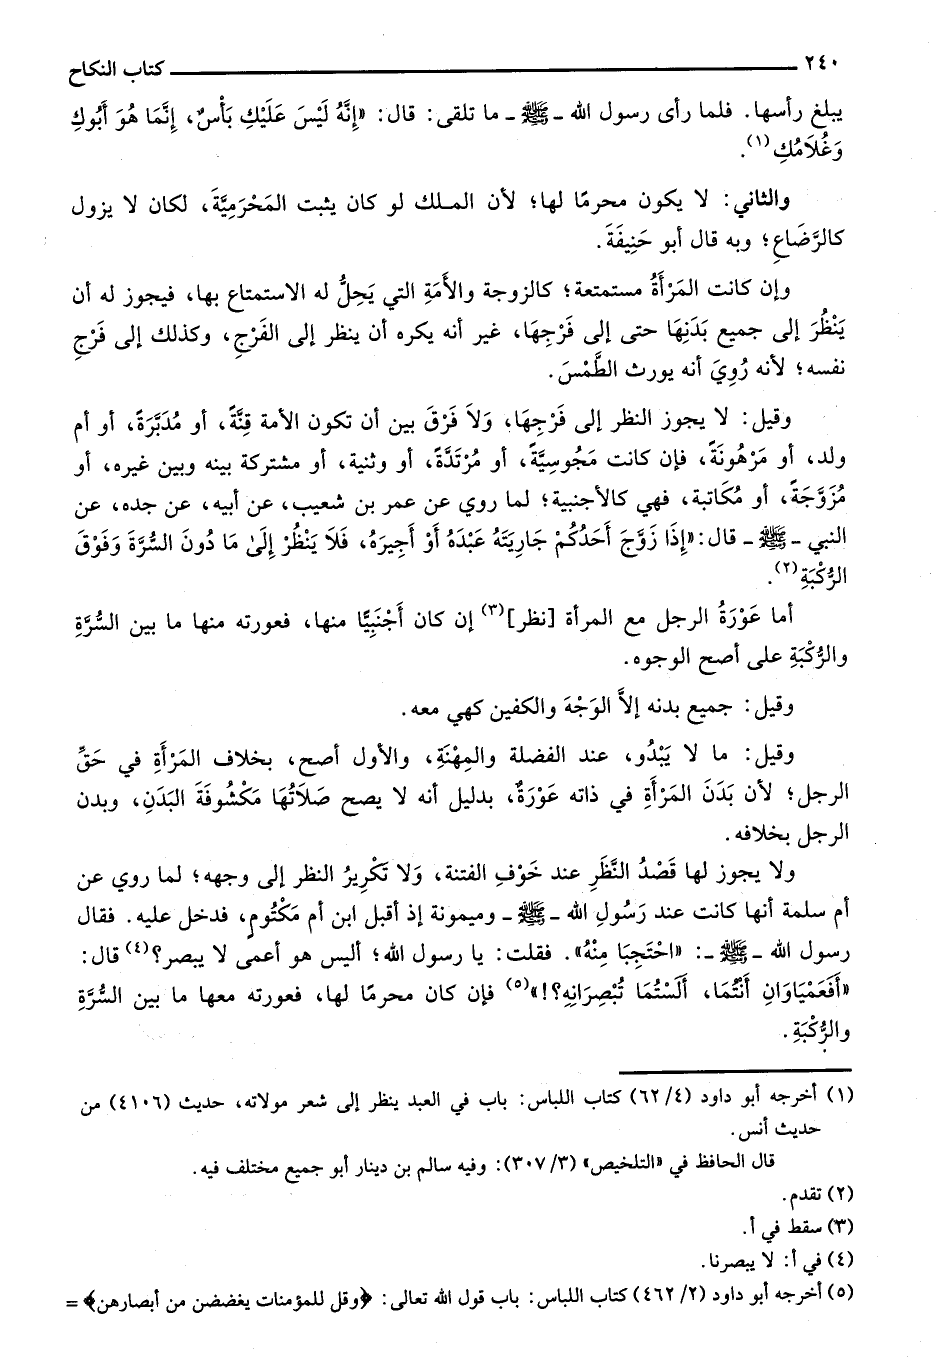 ٢٤٠ كتاب النكاح
يبلغ رأسها. فلما رأى رسول الله ـ ﷺ ـ ما تلقى: قال: «إِنَّهُ لَيْسَ عَلَيْكِ بَأْسٌ، إِنَّمَا هُوَ أَبُوكِ
وَغُلَامُكِ(١).
والثاني: لا يكون محرمًا لها؛ لأن الملك لو كان يثبت المَحْرَمِيَّةَ، لكان لا يزول
كالرَّضَاعِ؛ وبه قال أبو حَنِيفَةَ.
وإن كانت المَرْأَةُ مستمتعة؛ كالزوجة والأَمَةِ التي يَحِلُّ له الاستمتاع بها، فيجوز له أن
يَنْظُرَ إلى جميع بَدَنِهَا حتى إلى فَرْجِهَا، غير أنه يكره أن ينظر إلى الفَرْجِ، وكذلك إلى فَرْجِ
نفسه؛ لأنه رُوِيَ أنه يورث الطَّمْسَ.
وقيل: لا يجوز النظر إلى فَرْجِهَا، وَلاَ فَرْقَ بين أن تكون الأمة قِنَّةً، أو مُدَبَّرَةً، أو أم
ولد، أو مَرْهُونَةً، فإن كانت مَجُوسِيَّةً، أو مُرْتَدَّةً، أو وثنية، أو مشتركة بينه وبين غيره، أو
مُزَوَّجَةً، أو مُكَاتبة، فهي كالأجنبية؛ لما روي عن عمر بن شعيب، عن أبيه، عن جده، عن
النبي ـ ﷺ ـ قال: «إِذَا زَوَّجَ أَحَدُكُمْ جَارِيَتَهُ عَبْدَهُ أَوْ أَجِيرَهُ، فَلَا يَنْظُرْ إِلَىٰ مَا دُونَ السُّرَّةِ وَفَوْقَ
الرُّكْبَةِ(٢).
أما عَوْرَةُ الرجل مع المرأة [نظر](٣) إن كان أَجْنَبِيًّا منها، فعورته منها ما بين السُّرَّةِ
والرُّكْبَةِ على أصح الوجوه.
وقيل: جميع بدنه إلاَّ الوَجْهَ والكفين كهي معه.
وقيل: ما لا يَبْدُو، عند الفضلة والمِهْنَةِ، والأول أصح، بخلاف المَرْأَةِ في حَقِّ
الرجل؛ لأن بَدَنَ المَرْأَةِ في ذاته عَوْرَةٌ، بدليل أنه لا يصح صَلَاتُهَا مَكْشُوفَةَ البَدَنِ، وبدن
الرجل بخلافه.
ولا يجوز لها قَصْدُ النَّظَرِ عند خَوْفِ الفتنة، وَلَا تَكْرِيرُ النظر إلى وجهه؛ لما روي عن
أم سلمة أنها كانت عند رَسُولِ الله ـ ﷺ ـ وميمونة إذ أقبل ابن أم مَكْتُومٍ، فدخل عليه. فقال
رسول الله ـ ﷺ ـ: «احْتَجِبَا مِنْهُ». فقلت: يا رسول الله؛ أليس هو أعمى لا يبصر؟(٤) قال:
«أَفَعَمْيَاوَانِ أَنْتُمَا، أَلَسْتُمَا تُبْصِرَانِهِ؟!»(٥) فإن كان محرمًا لها، فعورته معها ما بين السُّرَّةِ
والرُّكْبَةِ.
(١) أخرجه أبو داود (٤/ ٦٢) كتاب اللباس: باب في العبد ينظر إلى شعر مولاته، حديث (٤١٠٦) من
حديث أنس.
قال الحافظ في «التلخيص» (٣/ ٣٠٧): وفيه سالم بن دينار أبو جميع مختلف فيه.
(٢) تقدم.
(٣) سقط في أ.
(٤) في أ: لا يبصرنا.
(٥) أخرجه أبو داود (٢/ ٤٦٢) كتاب اللباس: باب قول الله تعالى: ﴿وقل للمؤمنات يغضضن من أبصارهن﴾ =